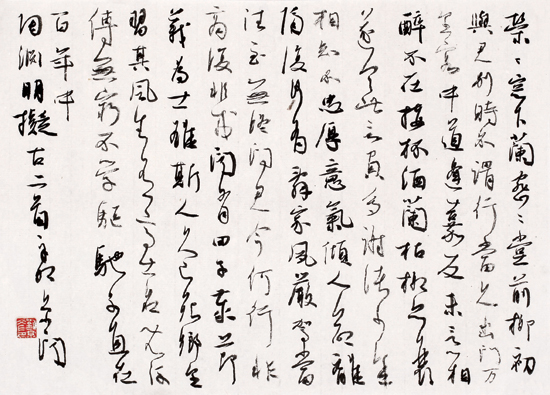 榮〻窓下蘭密〻堂前柳初
與君別時不謂行當久出門万
里客中道逢嘉友未言心相
醉不在接杯酒蘭枯柳亦衰
遂令此言負多謝諸少年
相知不忠厚意氣傾人命離
隔復何有辭家夙嚴駕當
往至無終問君今何行非
商復非戎聞有田子泰節
義為士雄斯人久已死鄉里
習其風生有高世名既沒
傳無窮不學驅馳子直在
百年中
陶淵明擬古二首